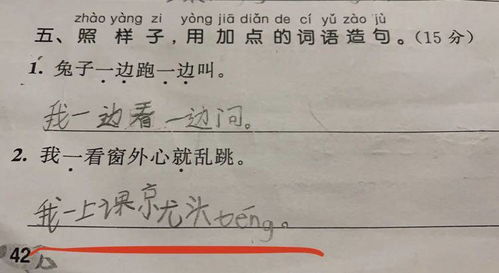 zhào yàng zi yòng jiā diǎn de cí yǔ zào jù
五、照样子,用加点的词语造句。(15分)
1. 兔子一边跑一边叫。
我一边看一边问。
2. 我一看窗外心就乱跳。
我一上课京尤头téng。
42